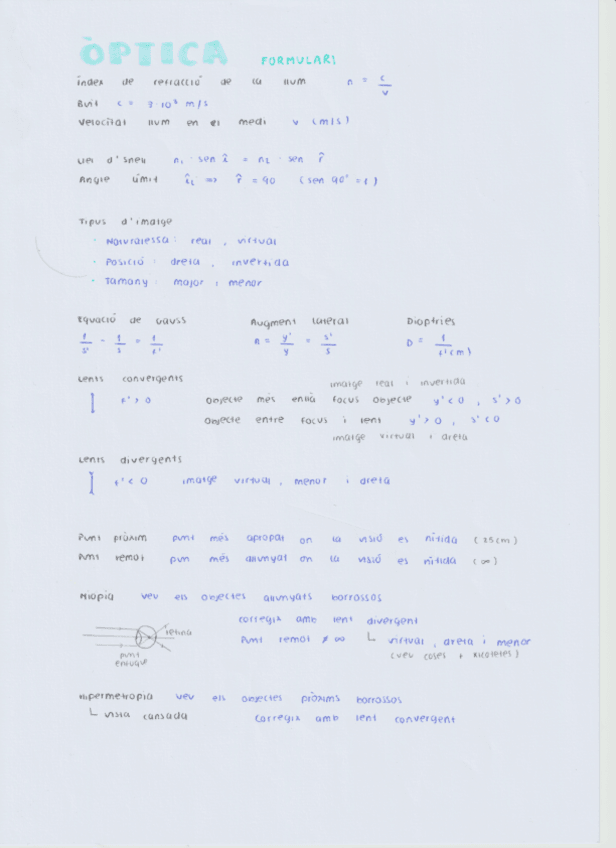 ÒPTICA FORMULARI
índex de refracció de la llum n = c/v
Buit c = 3·10⁸ m/s
Velocitat llum en el medi v (m/s)
Llei d'Snell n₁ · sen î = n₂ · sen r̂
Angle límit î_L => r̂ = 90 (sen 90° = 1)
Tipus d'imatge
· Naturalessa: real, virtual
· Posició: dreta, invertida
· Tamany: major i menor
Equació de Gauss Augment lateral Dioptries
1/s' - 1/s = 1/f' A = y'/y = s'/s D = 1/f'(m)
Lents convergents imatge real i invertida
f' > 0 Objecte més enllà focus objecte y' < 0, s' > 0
Objecte entre focus i lent y' > 0, s' < 0
imatge virtual i dreta
Lents divergents
f' < 0 imatge virtual, menor i dreta
Punt pròxim punt més apropat on la visió es nítida (25cm)
Punt remot pun més allunyat on la visió es nítida (∞)
Miopia veu els objectes allunyats borrossos
corregix amb lent divergent
retina
Punt remot ≠ ∞ └ virtual, dreta i menor
punt (veu coses + xicotetes)
enfoque
Hipermetropia veu els objectes pròxims borrossos
└ vista cansada corregix amb lent convergent